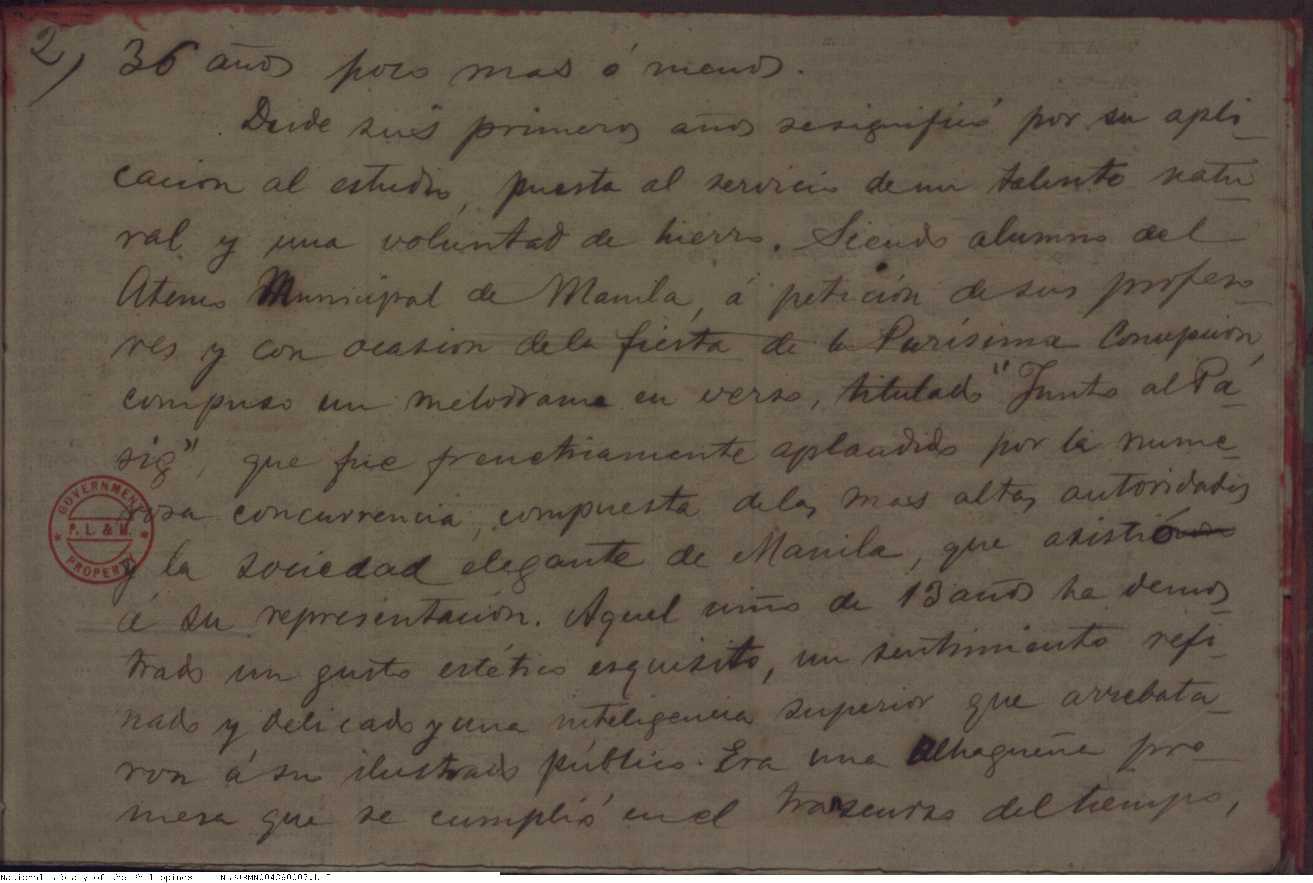 2)
36 años poco mas ó menos.
Desde sus primeros años se significó por su apli-
cacion al estudio, puesta al servicio de un talento natu-
ral y una voluntad de hierro. Siendo alumno del
Ateneo Municipal de Manila, á petición de sus profeso-
res y con ocasion de la fiesta de la Purísima Concepcion,
compuso un melodrama en verso, titulado "Junto al Pa-
sig", que fue freneticamente aplaudido por la nume-
rosa concurrencia, compuesta de las mas altas autoridades
y la sociedad elegante de Manila, que asistió
á su representación. Aquel niño de 13 años ha demos-
trado un gusto estético esquisito, un sentimiento refi-
nado y delicado y una inteligencia superior que arrebata-
ron á su ilustrado público. Era una alhagueña pro-
mesa que se cumplió en el trascurso del tiempo,
GOVERNMENT
P. L. & M.
PROPERTY
National Library of the Philippines